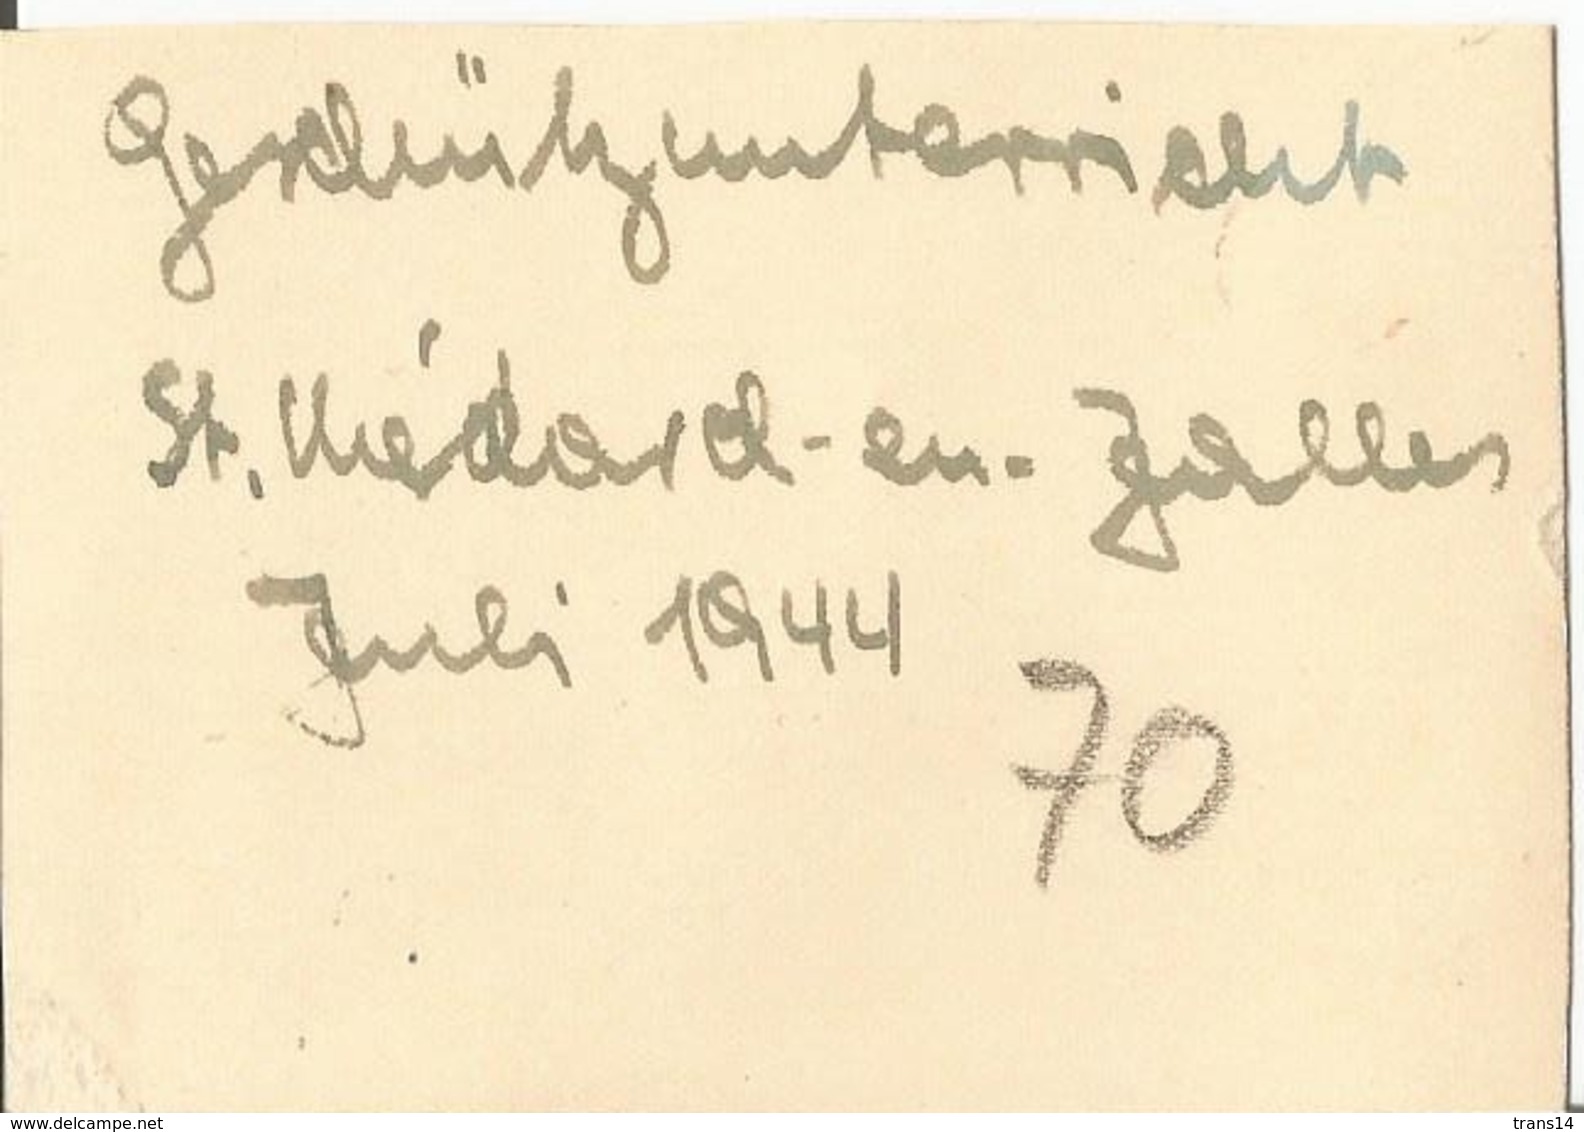 Geschützunterricht
St. Médard-en-Jalles
Juli 1944
70
www.delcampe.net
trans14